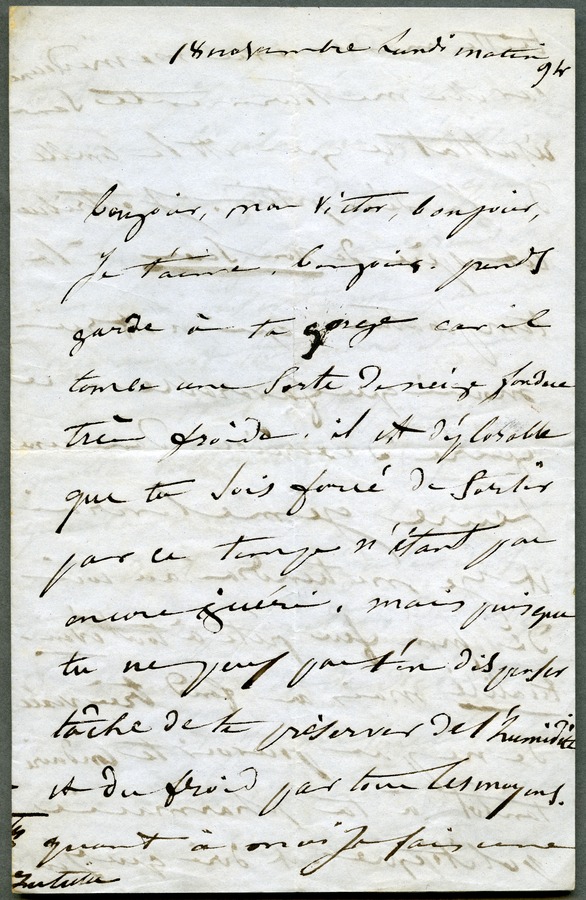 18 novembre Lundi matin
9h
bonjour, mon Victor, bonjour,
Je t'aime, bonjour. prends
garde à ta gorge car il
tombe une sorte de neige fondue
très froide. il est déplorable
que tu sois forcé de sortir
par ce temps n'étant pas
encore guéri. mais puisque
tu ne peux pas t'en dispenser
tâche de te préserver de l'humidité
et du froid par tous les moyens.
quant à moi je fais une